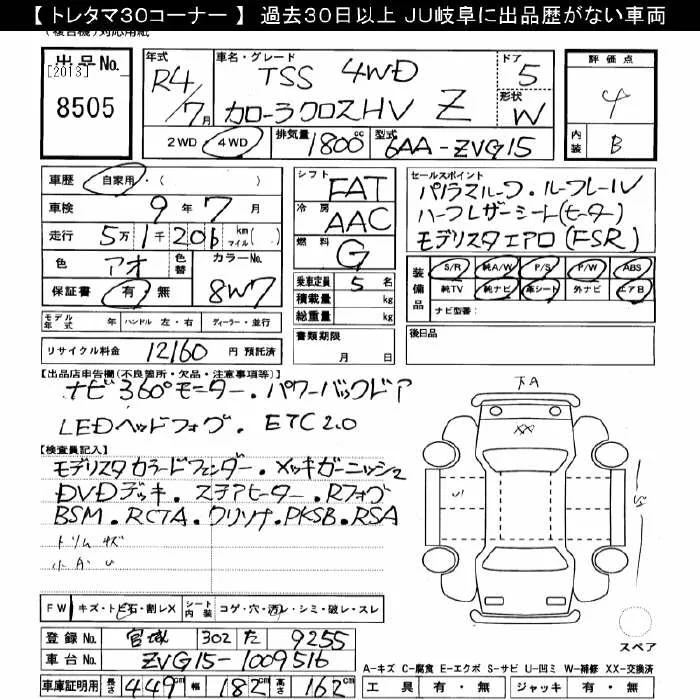 【 トレタマ30コーナー 】 過去30日以上 JU岐阜に出品歴がない車両
出品No.
[2013]
8505
年式
R4/7月
車名・グレード
TSS 4WD
カローラクロスHV Z
ドア
5
形状
W
2WD・4WD 排気量 1800cc 型式 6AA-ZVG15
評価点
4
内装
B
車歴 自家用・( )
車検 9年7月
走行 5万1千206 km マイル( )
色 アオ 色替 カラーNo. 8W7
保証書 有・無
モデル年式 年 ハンドル 左・右 ディーラー・並行
リサイクル料金 12160 円 預託済
シフト FAT
冷房 AAC
燃料 G
乗車定員 5名
積載量 kg
総重量 kg
書類期限
月 日
セールスポイント
パノラマルーフ・ルーフレール
ハーフレザーシート(ヒーター)
モデリスタエアロ(FSR)
装備品
S/R 純A/W P/S P/W ABS
純TV 純ナビ 革シート 外ナビ エアB
ナビ型番( )
後日品
【出品店申告欄(不良箇所・欠品・注意事項等)】
ナビ360°モニター・パワーバックドア
LEDヘッドフォグ・ETC2.0
【検査員記入】
モデリスタカラードフェンダー・メッキガーニッシュ
DVDデッキ・ステアヒーター・Rフォグ
BSM・RCTA・クリソナ・PKSB・RSA
トリムキズ
FW キズ・トビ石・割レX シート内装 コゲ・穴・汚レ・シミ・破レ・スレ
登録No. 宮城 302 た 9255
車台No. ZVG15-1009516
車庫証明用 長さ 449 幅 182 高さ 162 cm
下A
XX
スペア
A-キズ C-腐食 E-エクボ S-サビ U-凹ミ W-補修 XX-交換済
工具 有・無 ジャッキ 有・無